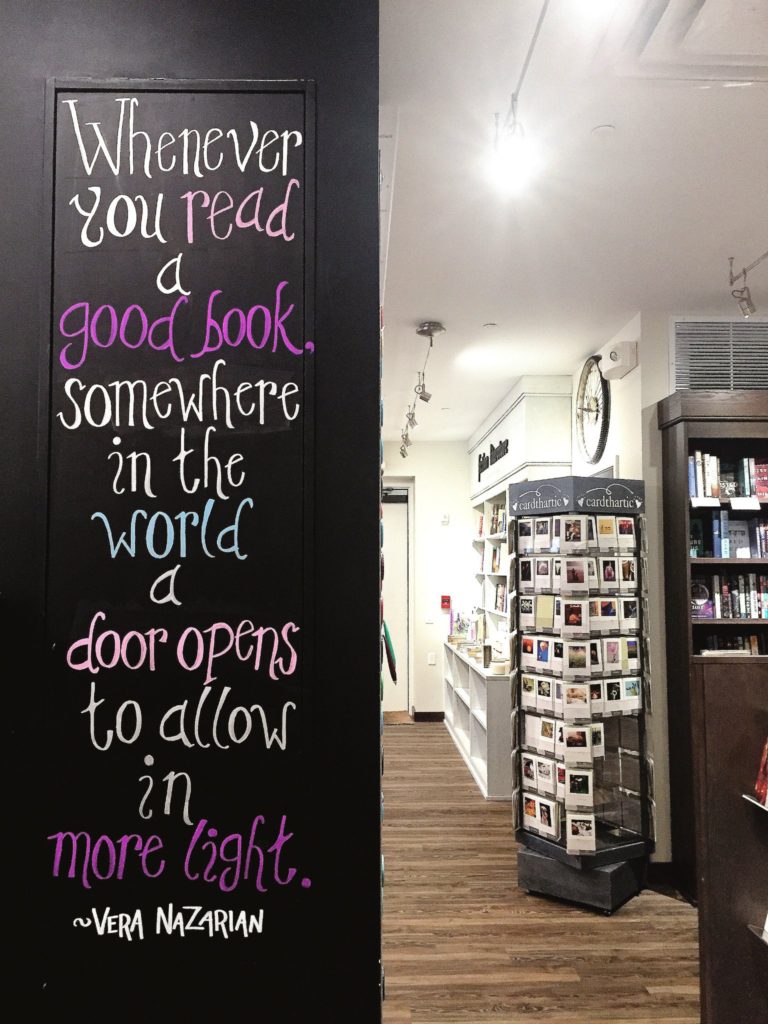 Whenever
you read
a
good book,
somewhere
in the
world
a
door opens
to allow
in
more light.
~VERA NAZARIAN
cardthartic
cardthartic